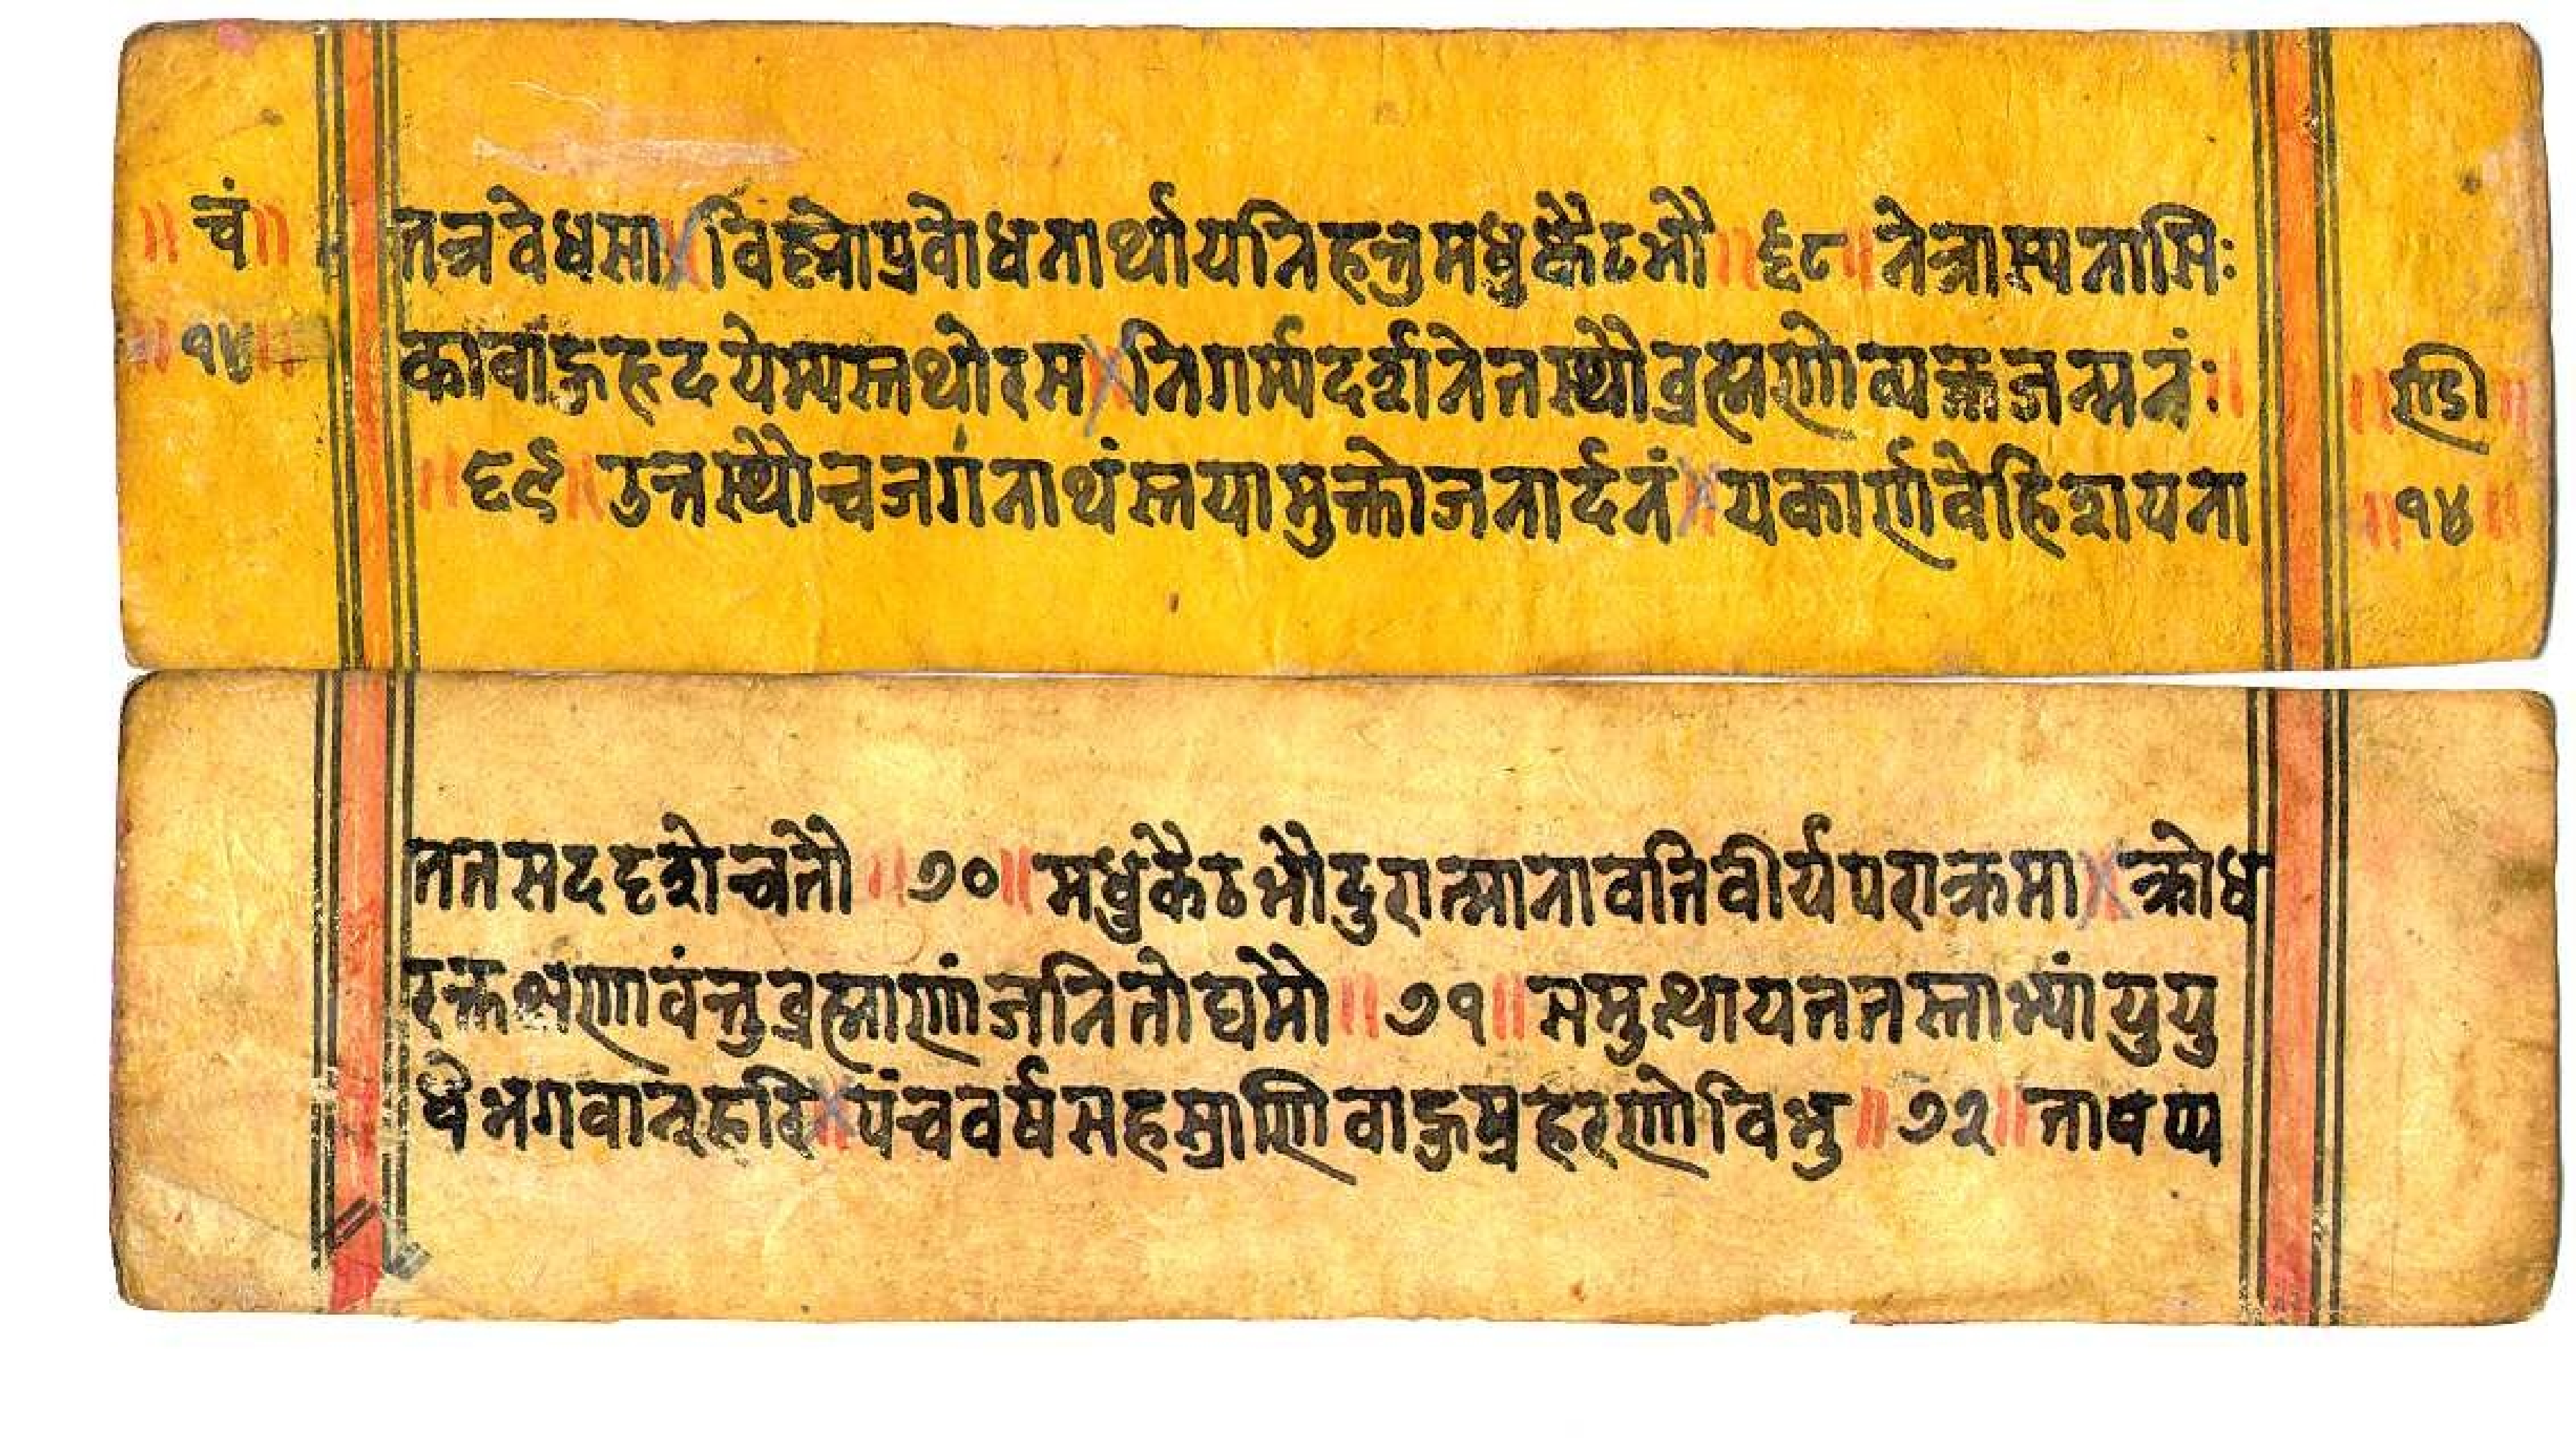 ॥ चं ॥
॥ १४ ॥
तत्रवेधसा। विष्नोप्रवोधनार्थाययनिहन्तुमधुकैटभौ ॥ ६८ ॥ नेत्रास्यनासिः
कावाहुहृदयेम्यस्तथोरस। निगर्म्यदर्शनेतस्थौव्रह्मणोव्यक्तजन्मनंः ॥
॥ ६९ ॥ उत्तस्थौचजगंनाथंस्तयामुक्तोजनार्दनं। यकार्णवेहिशयना
॥ ण्डी ॥
॥ १४ ॥
ततसददृशेचतौ ॥ ७० ॥ मधुकैटभौदुरात्मानावतिवीर्यपराक्रमा। क्रोध
रक्तक्षणावंत्तुव्रह्माणंजनितोद्यमौ ॥ ७१ ॥ समुत्थायततस्ताभ्यांयुयु
धेभगवान्हरि। पंचवर्षसहस्राणिवाहुप्रहरणोविभु ॥ ७२ ॥ तावप्य